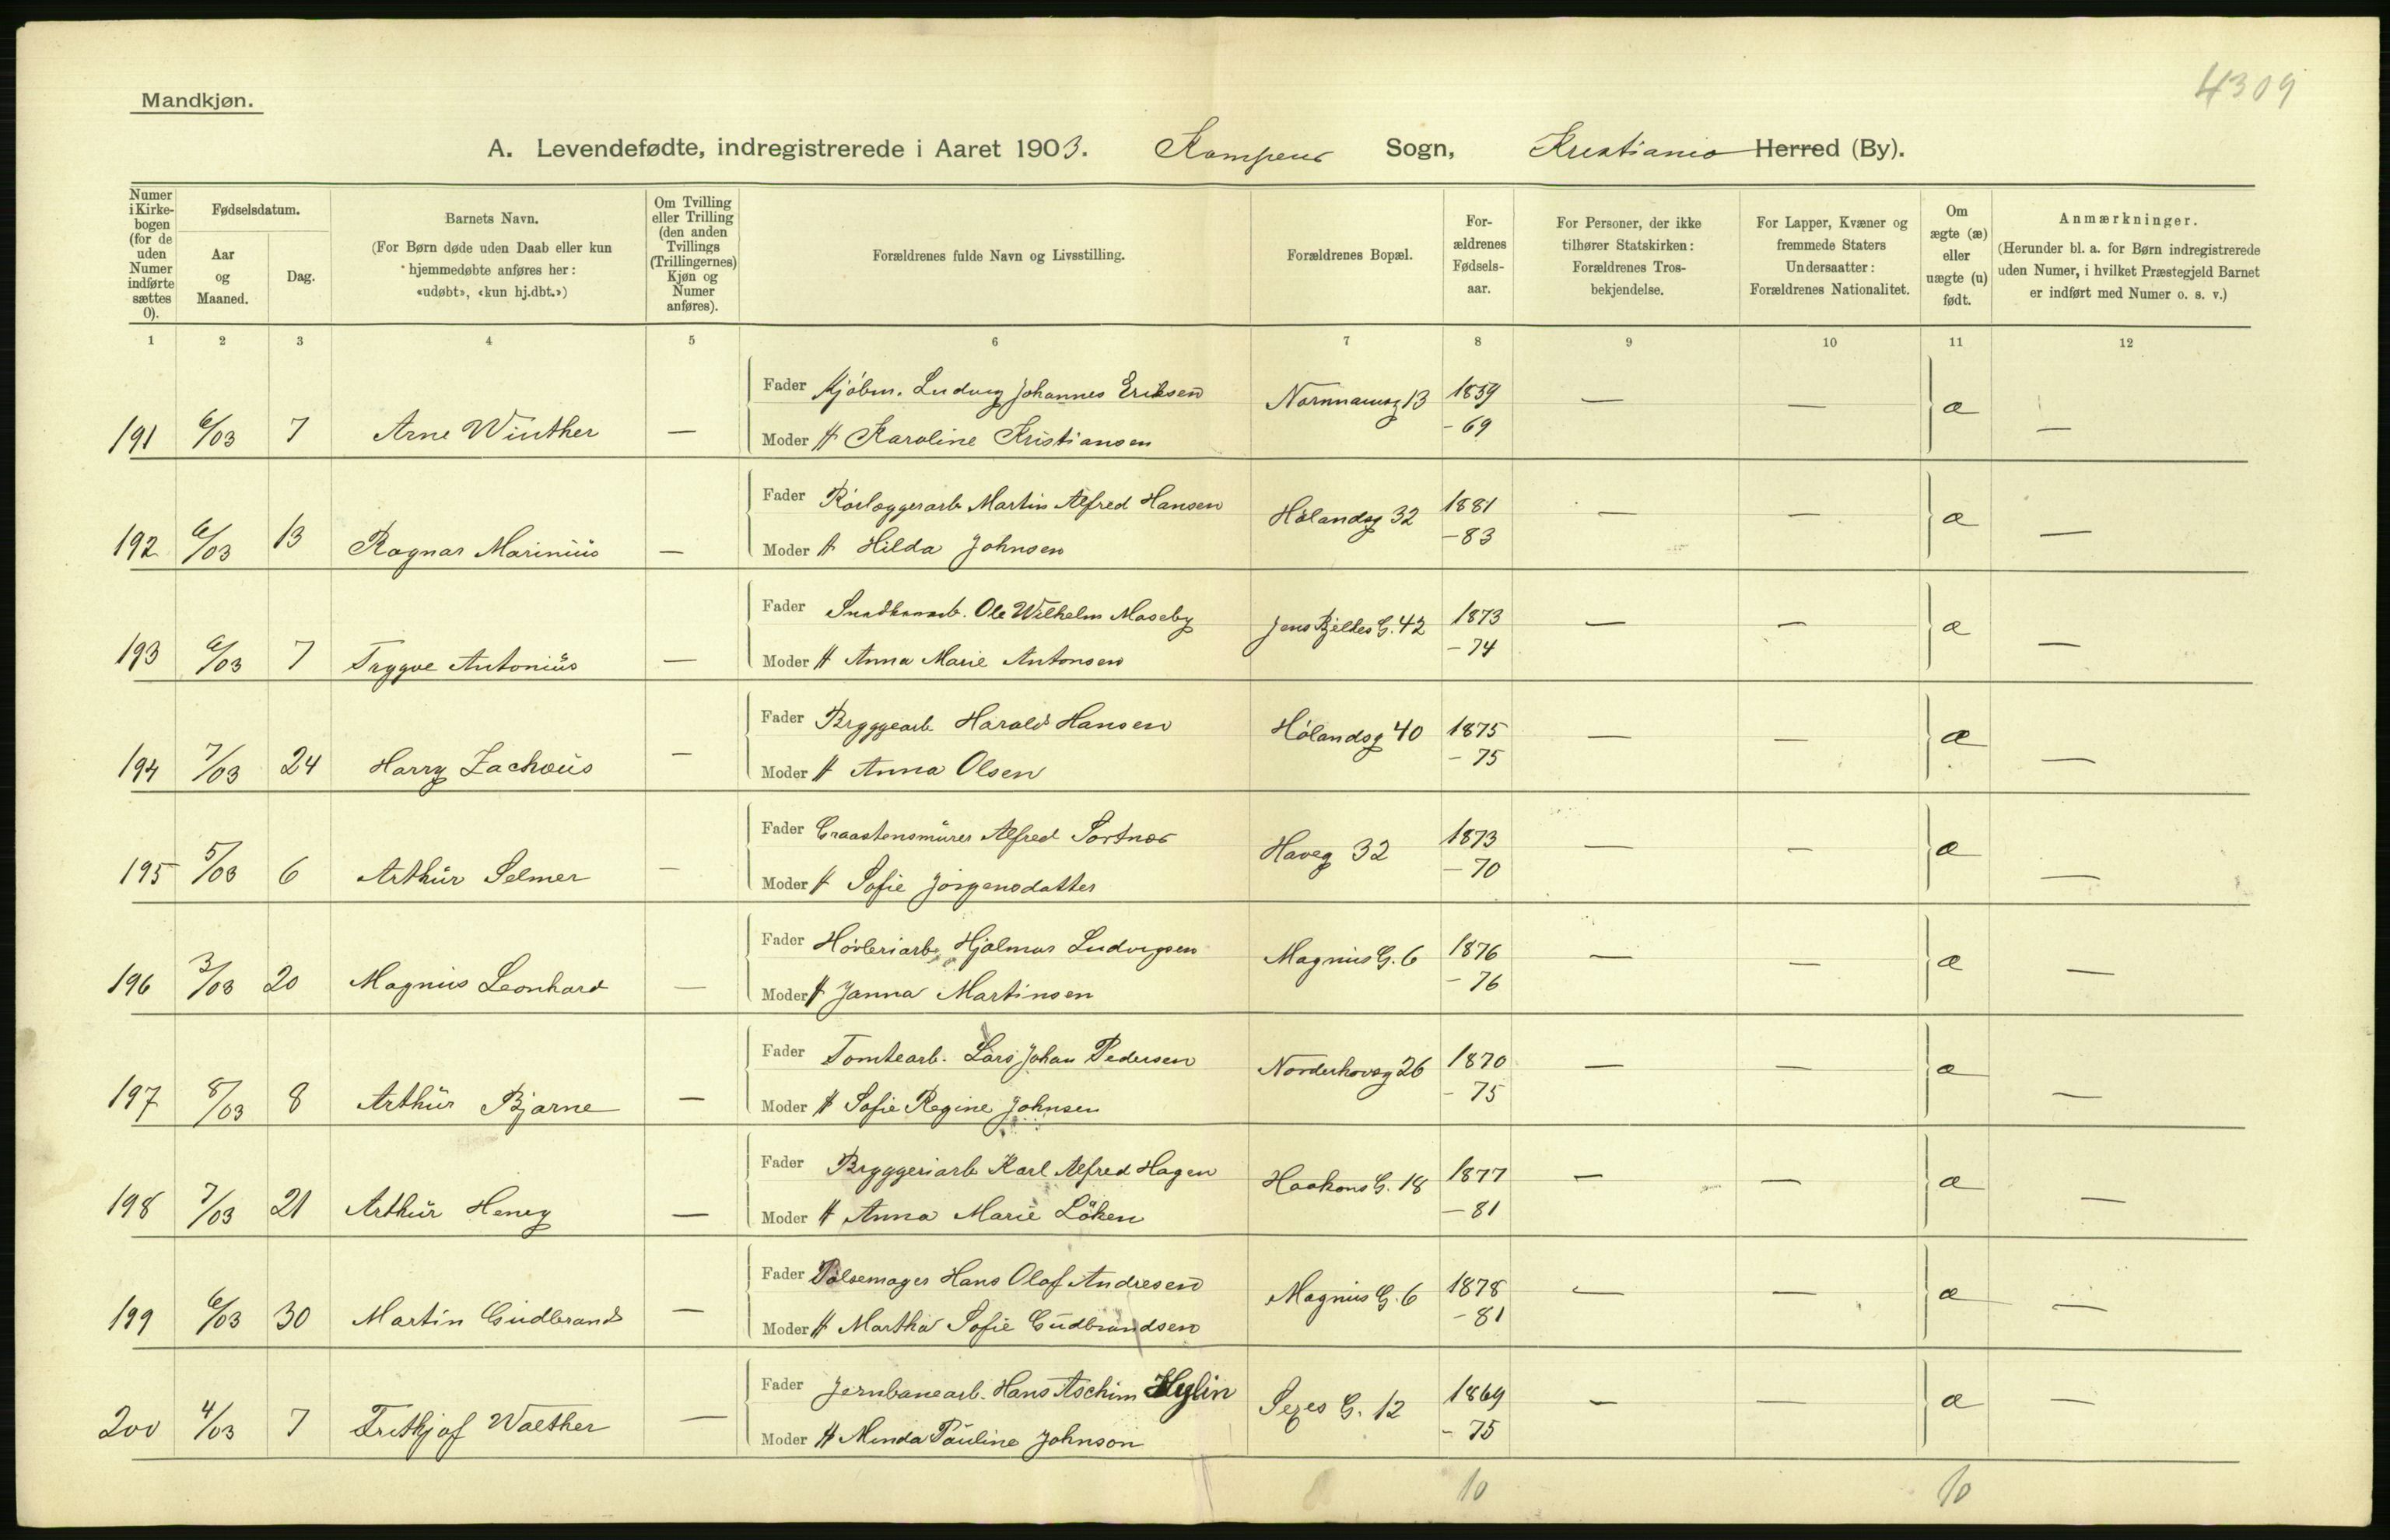 4309
Mandkjøn.
A. Levendefødte, indregistrerede i Aaret 1903. Kampens Sogn, Kristiania Herred (By).
Numer i Kirkebogen (for de uden Numer indførte sættes 0).
Fødselsdatum.
Aar og Maaned.
Dag.
Barnets Navn.
(For Børn døde uden Daab eller kun hjemmedøbte anføres her: «udøbt», «kun hj.dbt.»)
Om Tvilling eller Trilling (den anden Tvillings (Trillingernes) Kjøn og Numer anføres).
Forældrenes fulde Navn og Livsstilling.
Forældrenes Bopæl.
For-ældrenes Fødsels-aar.
For Personer, der ikke tilhører Statskirken: Forældrenes Tros-bekjendelse.
For Lapper, Kvæner og fremmede Staters Undersaatter: Forældrenes Nationalitet.
Om ægte (æ) eller uægte (u) født.
Anmærkninger.
(Herunder bl. a. for Børn indregistrerede uden Numer, i hvilket Præstegjeld Barnet er indført med Numer o. s. v.)
1 2 3 4 5 6 7 8 9 10 11 12
Fader Kjøbm. Ludvig Johannes Eriksen Normansg 13 1859 — — æ
191 6/03 7 Arne Winther — Moder H Karoline Kristiansen - 69 —
Fader Rörlæggerarb Martin Alfred Hansen Hølandsg 32 1881 — — æ
192 6/03 13 Ragnar Marinius — Moder H Hilda Johnsen - 83 —
Fader Ole Wilhelm Moseby Jens Bjelkes G. 42 1873 — — æ
193 6/03 7 Trygve Antonius — Moder H Anna Marie Antonsen - 74 —
Fader Bryggearb Harald Hansen Hølandsg 40 1875 — — æ
194 7/03 24 Harry Zachæus — Moder H Anna Olsen - 75 —
Fader Graastensmürer Alfred Sortnæs Haveg 32 1873 — — æ
195 5/03 6 Arthür Selmer — Moder H Sofie Jörgensdatter - 70 —
Fader Høvleriarb. Hjalmar Ludvigsen Magnus G. 6 1876 — — æ
196 3/03 20 Magnus Leonhard — Moder H Janna Martinsen - 76 —
Fader Tomtearb. Lars Johan Pedersen Norderhovsg 26 1870 — — æ
197 8/03 8 Arthür Bjarne — Moder H Sofie Regine Johnsen - 75 —
Fader Bryggeriarb Karl Alfred Hagen Haakons G. 18 1877 — — æ
198 7/03 21 Arthür Henry — Moder H Anna Marie Löken - 81 —
Fader Pölsemager Hans Olaf Andresen Magnus G. 6 1878 — — æ
199 6/03 30 Martin Gudbrand — Moder H Martha Sofie Gudbrandsen - 81 —
Fader Jernbanearb. Hans Aschim Hylin G. 12 1869 — — æ —
200 4/03 7 Frithjof Walther — Moder H Minda Pauline Johnson - 75
10 10